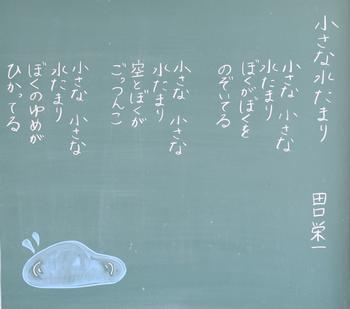 小さな水たまり
田口栄一
小さな 小さな
水たまり
ぼくがぼくを
のぞいてる
小さな 小さな
水たまり
空とぼくが
ごっつんこ
小さな 小さな
水たまり
ぼくのゆめが
ひかってる